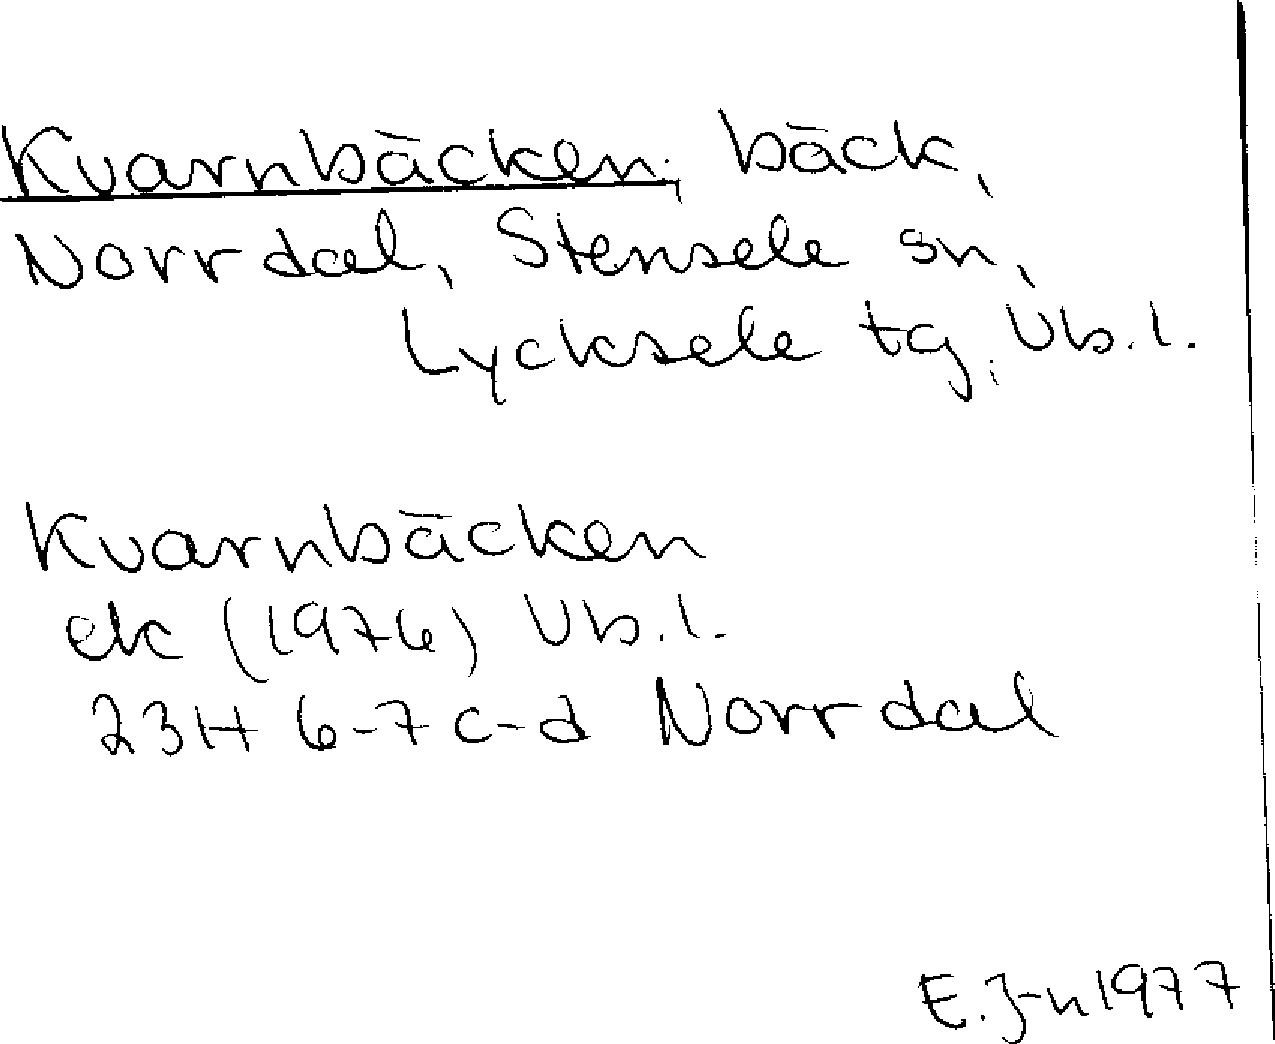 Kvarnbäcken, bäck,
Norrdal, Stensele sn,
Lycksele tg, Vb.l.
Kvarnbäcken
ek (1976) Vb.l.
23H 6-7 c-d Norrdal
E. J-n 1977